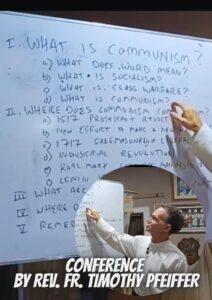 I. WHAT IS COMMUNISM?
a) WHAT DOES WORD MEAN?
b) WHAT IS SOCIALISM?
c) WHAT IS CLASS WARFARE?
d) WHAT IS COMMUNISM?
II. WHERE DOES COMMUNISM COME
a) 1517 PROTESTANT REVOLT
b) NEW EFFORT TO MAKE A
c) 1717 FREEMASONRY
d) INDUSTRIAL REVOLUTION
e) KARL MARX
LENIN
III WHAT ARE
IV WHERE D
V REMED
CONFERENCE
BY REV. FR. TIMOTHY PFEIFFER